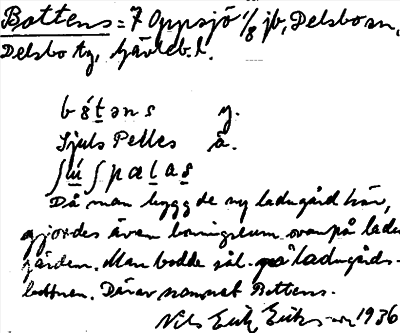 Bottens = 7 Oppsjö 1/8 jb, Delsbo sn,
Delsbo tg, Gävleb. l.
b ó t ə n s y.
Sjuls Pelles ä.
ʃ ú ʃ p æ l a s
Då man byggde ny ladugård här,
gjordes även boningsrum ovanpå ladu
gården. Man bodde sål. på ladugårds-
bottnen. Därav namnet Bottens.
Nils Erik Eriksson 1936